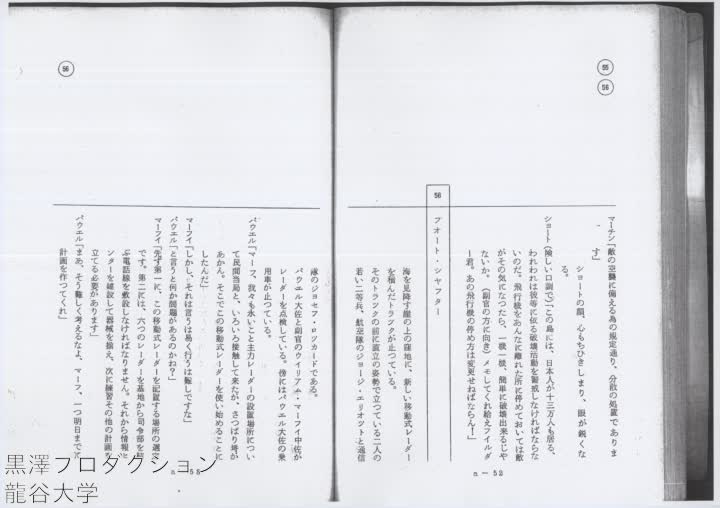 55
56
マーチン「敵の空襲に備える為の規定通り、分散の処置でありま
す」
ショートの顔、心もちひきしまり、眼が鋭くな
る。
ショート(険しい口調で)「この島には、日本人が十三万人も居る、
われわれは彼等に依る破壊活動を警戒しなければならな
いのだ。飛行機をあんなに離れた所に停めておいては敵
がその気になつたら、一機一機、簡単に破壊出来るじや
ないか。(副官の方に向き)メモしてくれ給えフイルダ
ー君。あの飛行機の停め方は変更せねばならん!」
56
フオート・シヤフター
海を見降す崖の上の窪地に、新しい移動式レーダー
を積んだトラツクが止つている。
そのトラツクの前に直立の姿勢で立つている二人の
若い二等兵、航空隊のジョージ・エリオツトと通信
a-52
56
隊のジョセフ・ロツカードである。
パウエル大佐と副官のウイリアム・マーフイ中佐が
レーダーを点検している。傍にはパウエル大佐の乗
用車が止つている。
パウエル「マーフ、我々も永いこと主力レーダーの設置場所につい
て民間当局と、いろいろ接触して来たが、さつぱり埒が
あかん。そこでこの移動式レーダーを使い始めることに
したんだ」
マーフイ「しかし、それは言うは易く行うは難しですな」
パウエル「と言うと何か問題があるのかね?」
マーフイ「先ず第一に、この移動式レーダーを配置する場所の選定
です。第二には、六つのレーダーを基地から司令部を結
ぶ電話線を敷設しなければなりません。それから情報セ
ンターを建設して器械を揃え、次に練習その他の計画を
立てる必要があります」
パウエル「まあ、そう難しく考えるなよ、マーフ、一つ明日までに
計画を作つてくれ」
a-53
黒澤プロダクション
龍谷大学